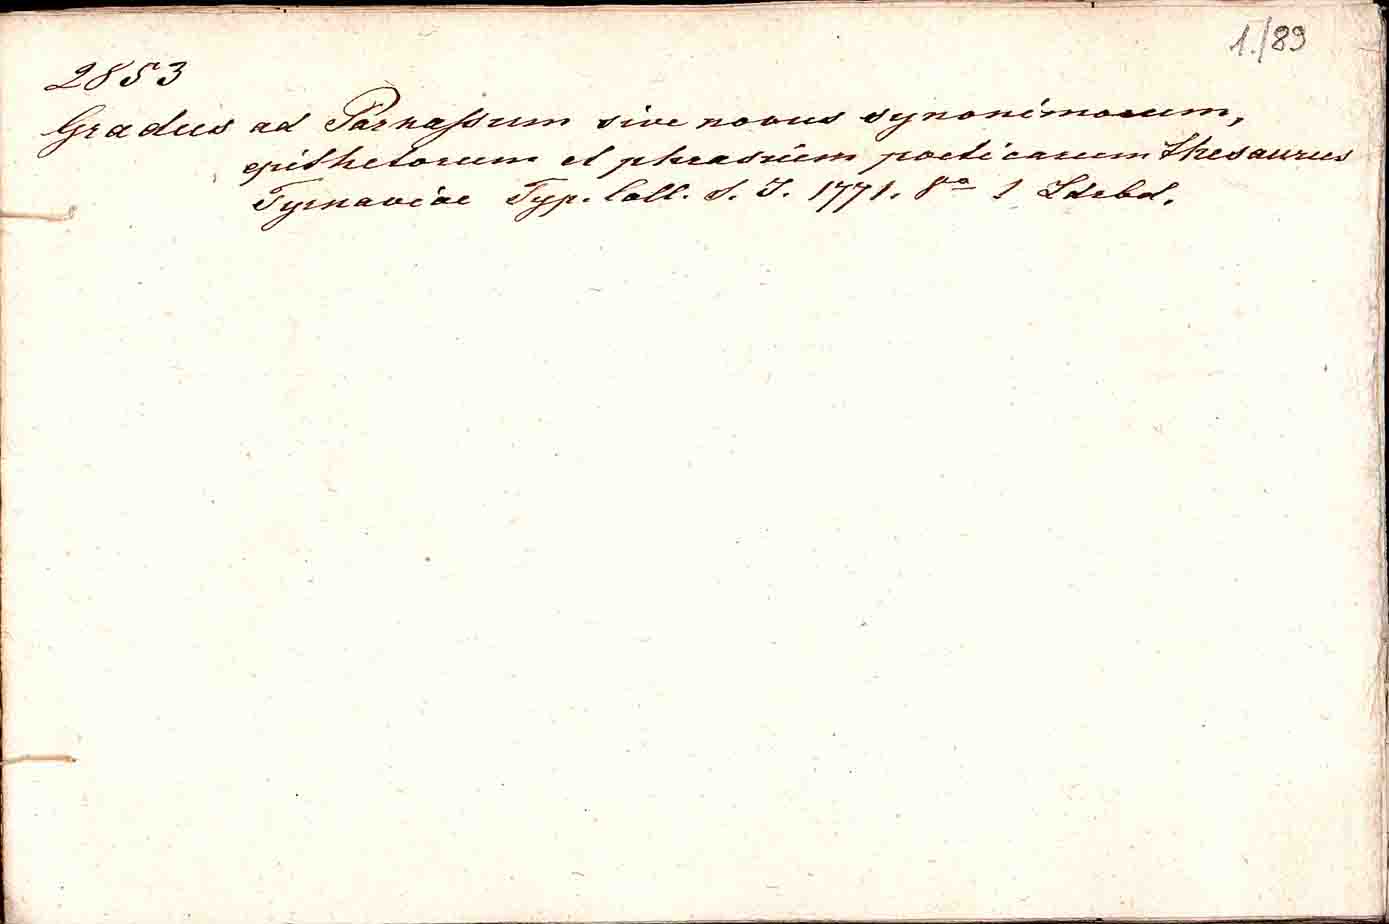 1./89
2853
Gradus ad Parnaſsum sive novus synonimorum,
epithetorum et phrasium poeticarum thesaurus
Tyrnaviae Typ. Coll. S. J. 1771. 8° 1 Ldrbd.